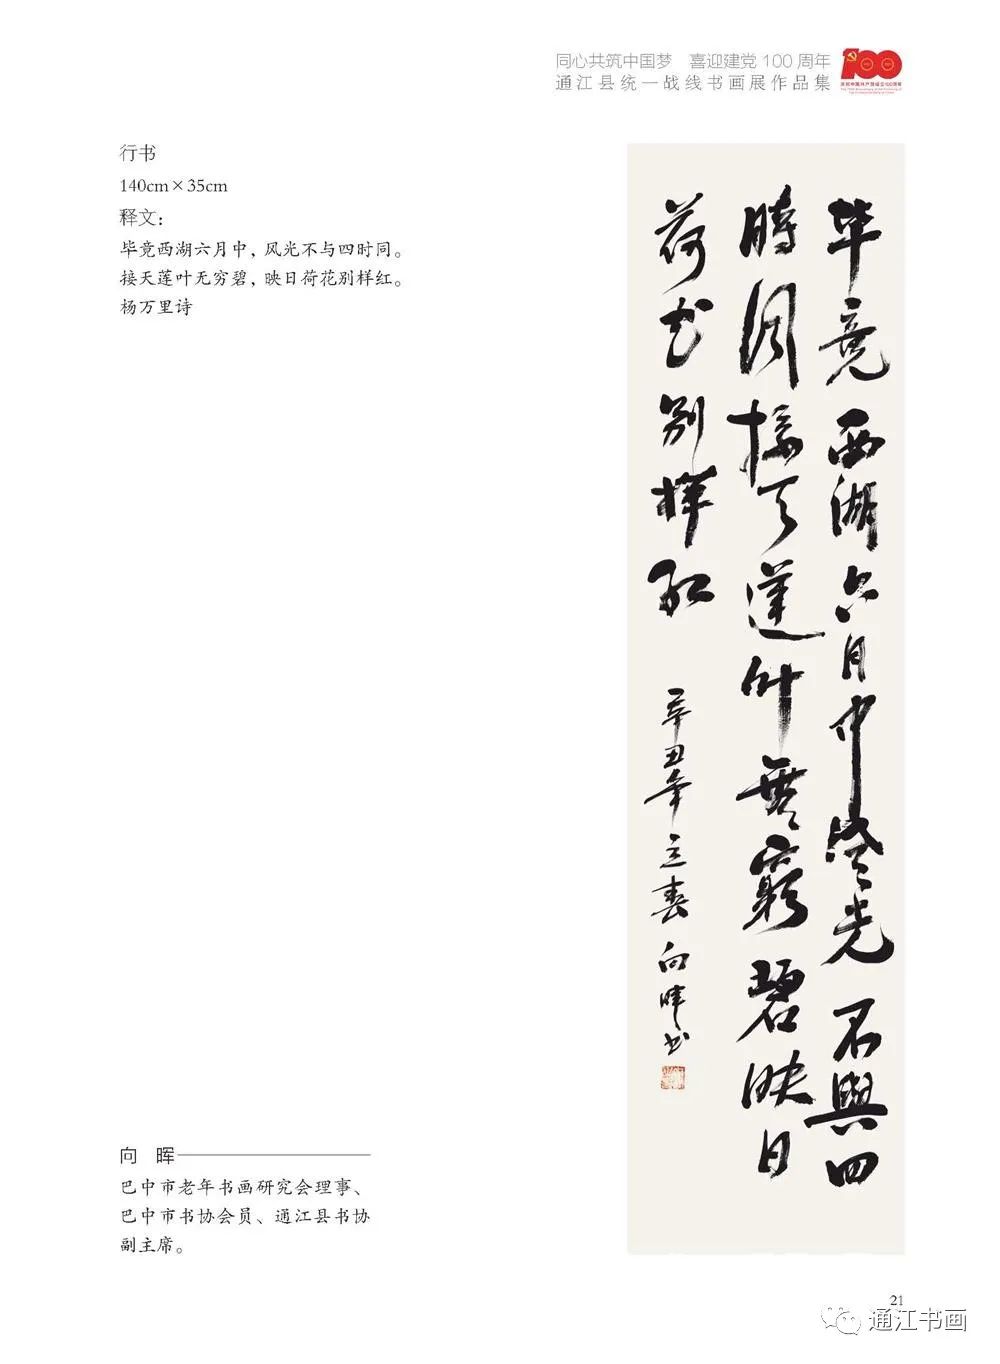 同心共筑中国梦 喜迎建党100周年
通江县统一战线书画展作品集
100
庆祝中国共产党成立100周年
行书
140cm×35cm
释文：
毕竟西湖六月中，风光不与四时同。
接天莲叶无穷碧，映日荷花别样红。
杨万里诗
毕竟西湖六月中风光不與四
時同接天蓮叶無窮碧映日
荷花别样红
辛丑年立春向晖书
向 晖
巴中市老年书画研究会理事、
巴中市书协会员、通江县书协
副主席。
21
通江书画